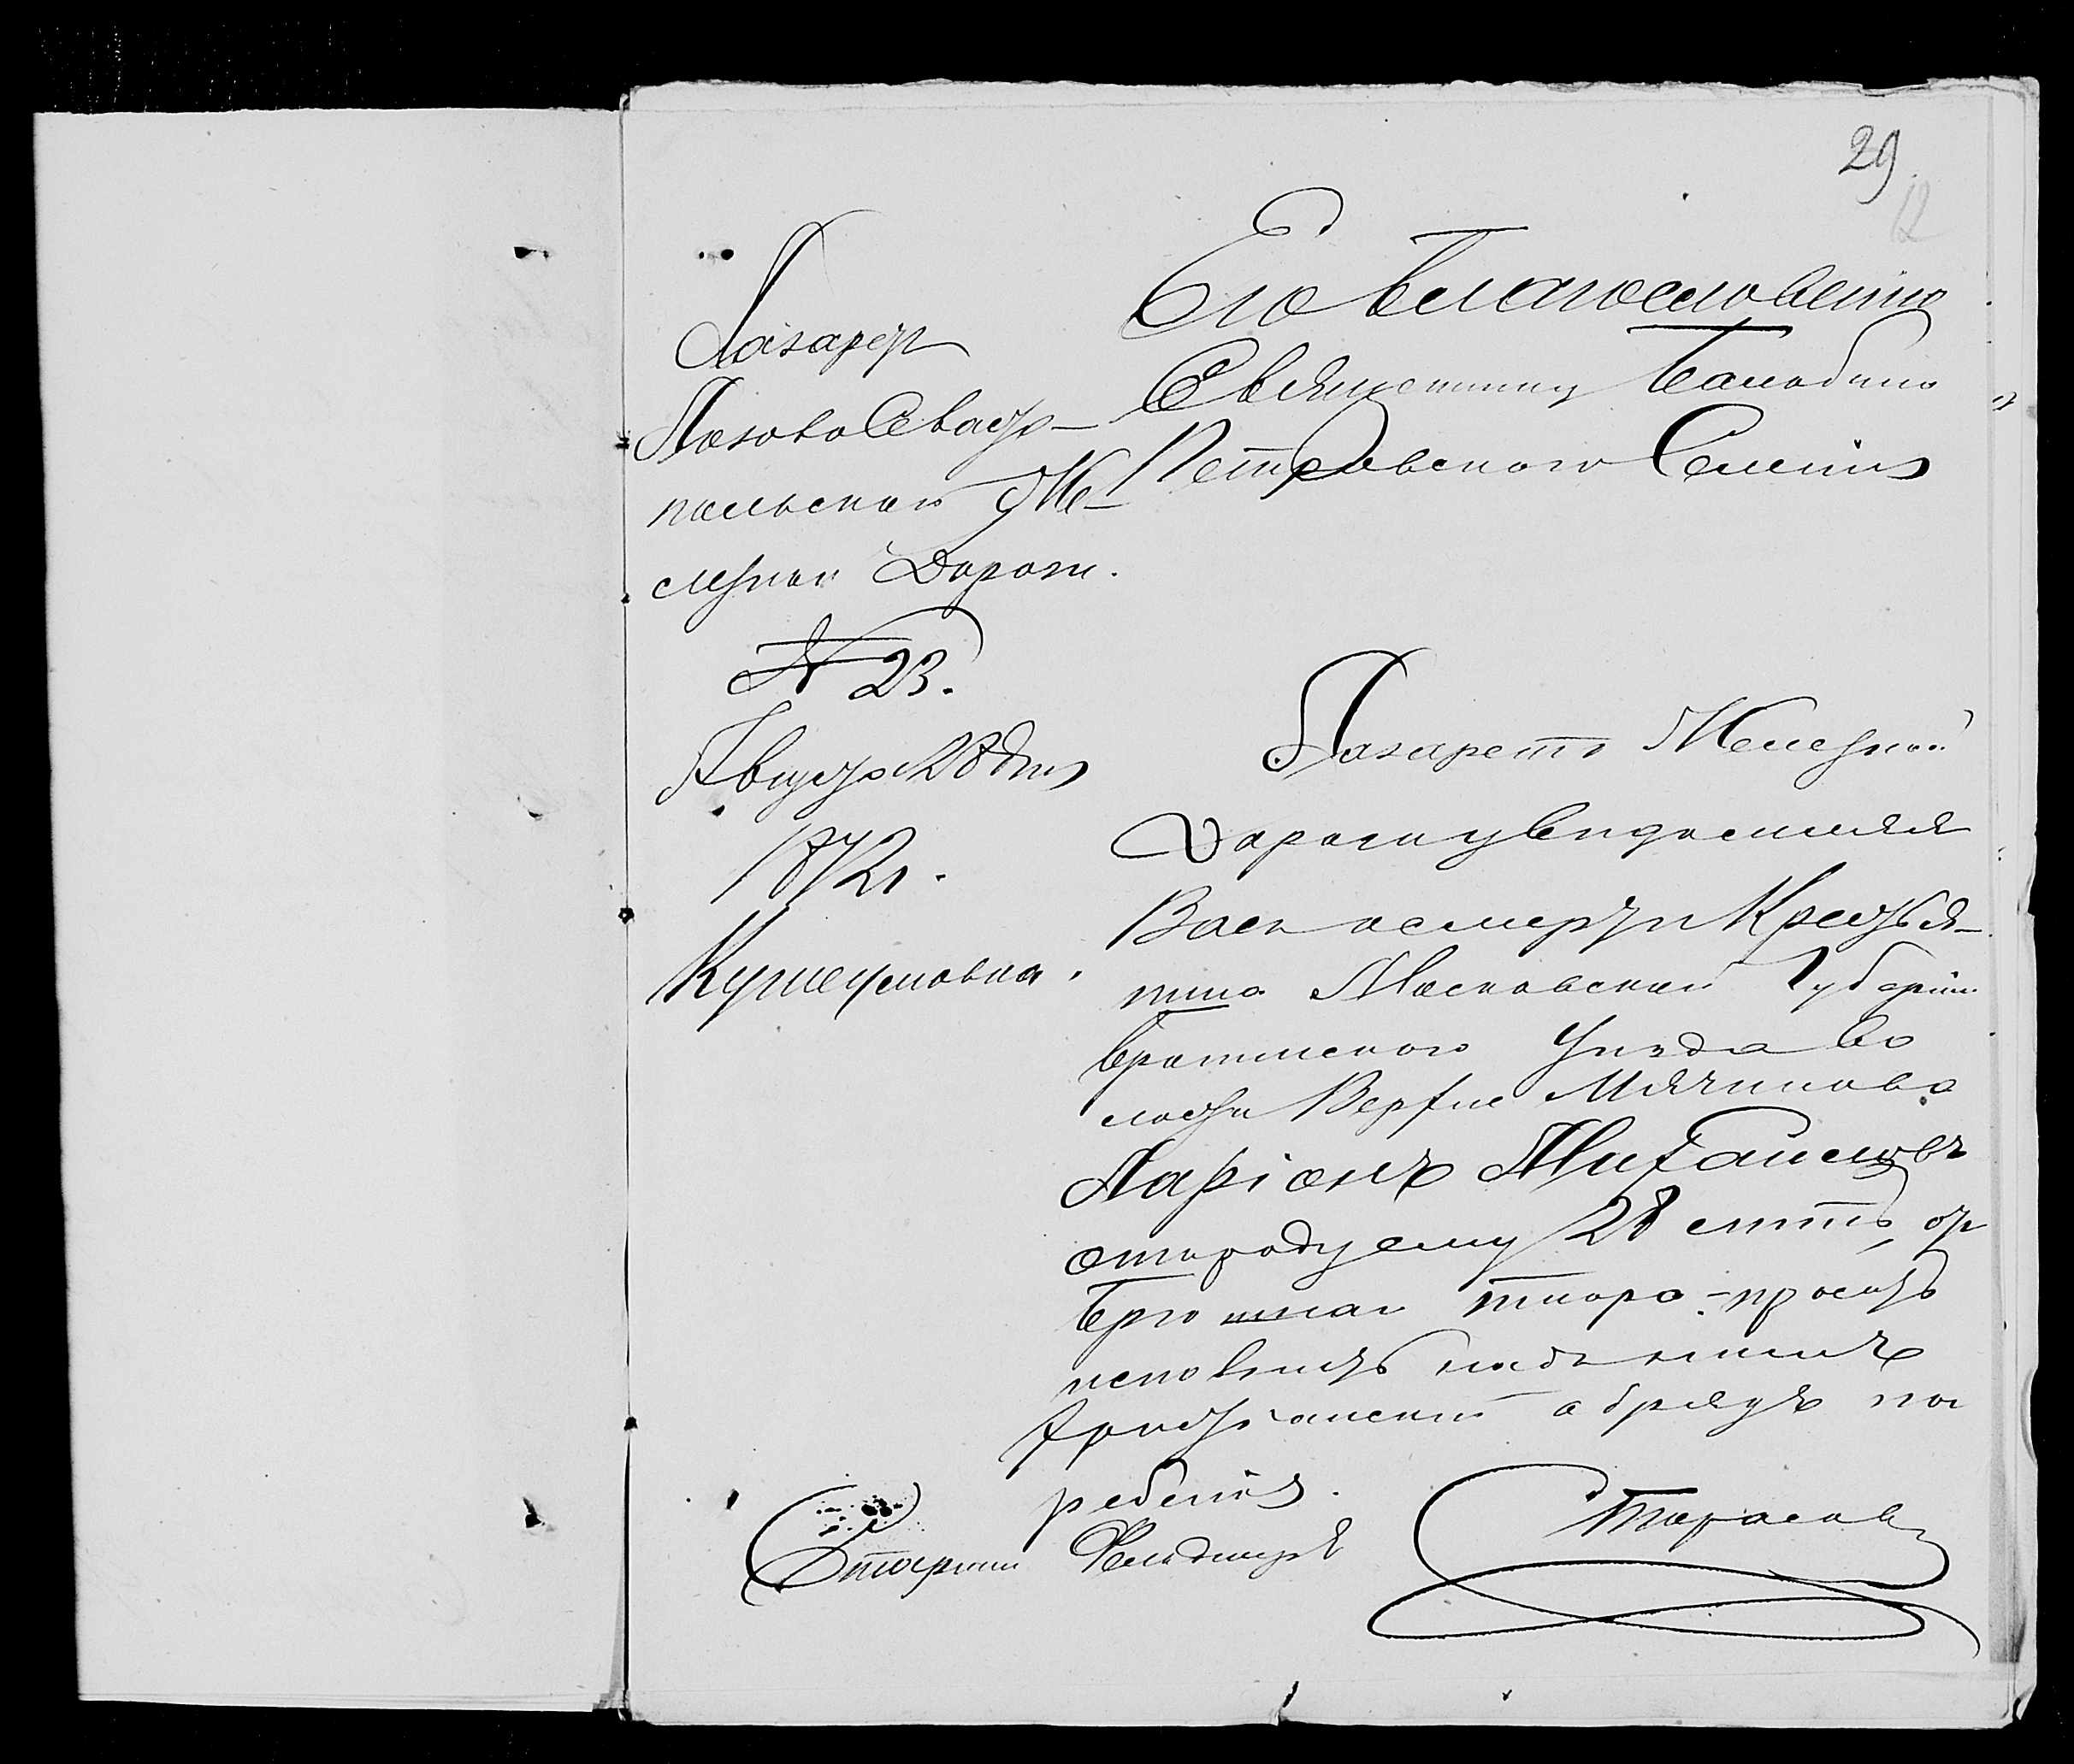 29
12
Лазарет
Лозово Севасто-
польской Же-
лезной Дороги.
№ 23.
Августа 28 дня
1872 г.
Кушугумовка.
Его Благословению
Священнику Балабино
Петровского Селения
Лазаретъ Железной
Дороги уведомляя
Вас о смерти Крестья-
нина Московской Губернии
Бронницкого Уезда Во
лости Верхне Мячиково
Ларіонъ Михайловъ
отъ роду ему 28 летъ, от
Брюшнаго тифа - просит
исполнить надъ нимъ
Христіанский обрядъ пог
ребенія.
Старший Фельдшеръ Тарасов